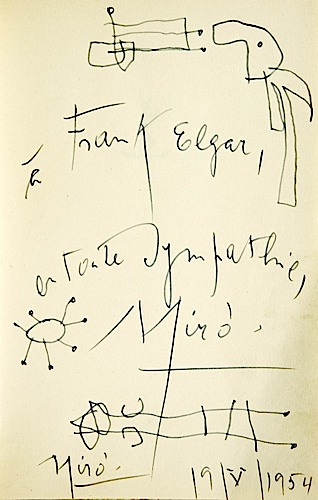 à Frank Elgar,
en toute Sympathie,
Miró.
Miró.
19/V/1954